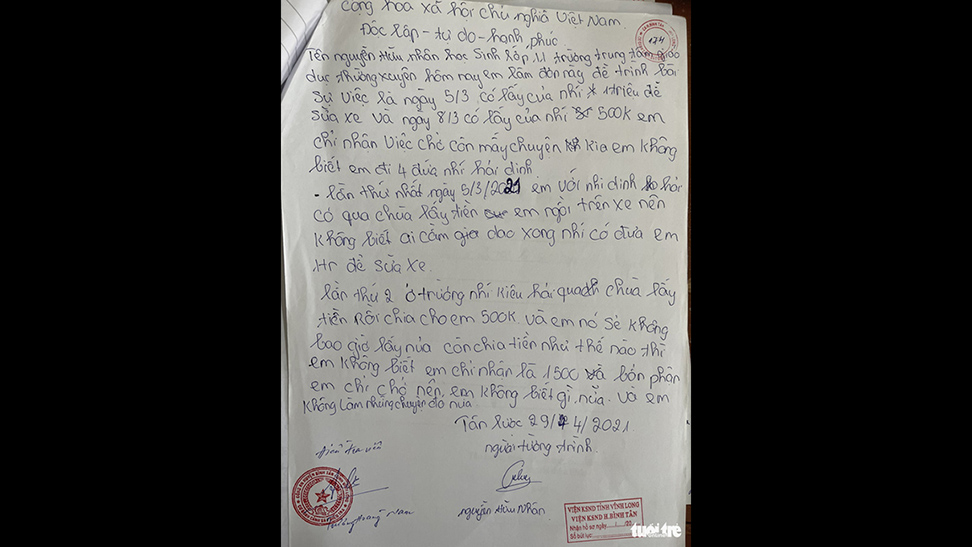 cộng hoà xã hội chủ nghĩa Việt Nam
Độc lập - tự do - hạnh phúc
174
Tên nguyễn Hữu nhân học Sinh lớp 11 trường trung tâm giáo
dục thường xuyên hôm nay em làm đơn này để trình bài
Sự việc là ngày 5/3 có lấy của nhí 1 triệu để
sửa xe và ngày 8/3 có lấy của nhí 500K em
chỉ nhận Việc chở còn mấy chuyện kia em không
biết em đi 4 đứa nhí hải dinh.
- lần thứ nhất ngày 5/3/2021 em với nhi dinh hải
có qua chùa lấy tiền em ngồi trên xe nên
không biết ai cầm dao xong nhí có đưa em
1tr để sửa xe.
lần thứ 2 ở trường nhí kiêu hải qua chùa lấy
tiền rồi chia cho em 500K và em nó sẽ không
bao giờ lấy nửa còn chia tiền như thế nào thì
em không biết em chỉ nhận là 1500 và bổn phận
em chỉ chở nên em không biết gì nửa. và em
không làm những chuyện đó nửa
Tân lược 29/4/2021
người tường trình.
Điều tra viên
nguyễn Hữu Nhân
Hoàng Nam
VIỆN KSND TỈNH VĨNH LONG
VIỆN KSND H.BÌNH TÂN
Nhận hồ sơ ngày
Số bút lục
tuổi trẻ